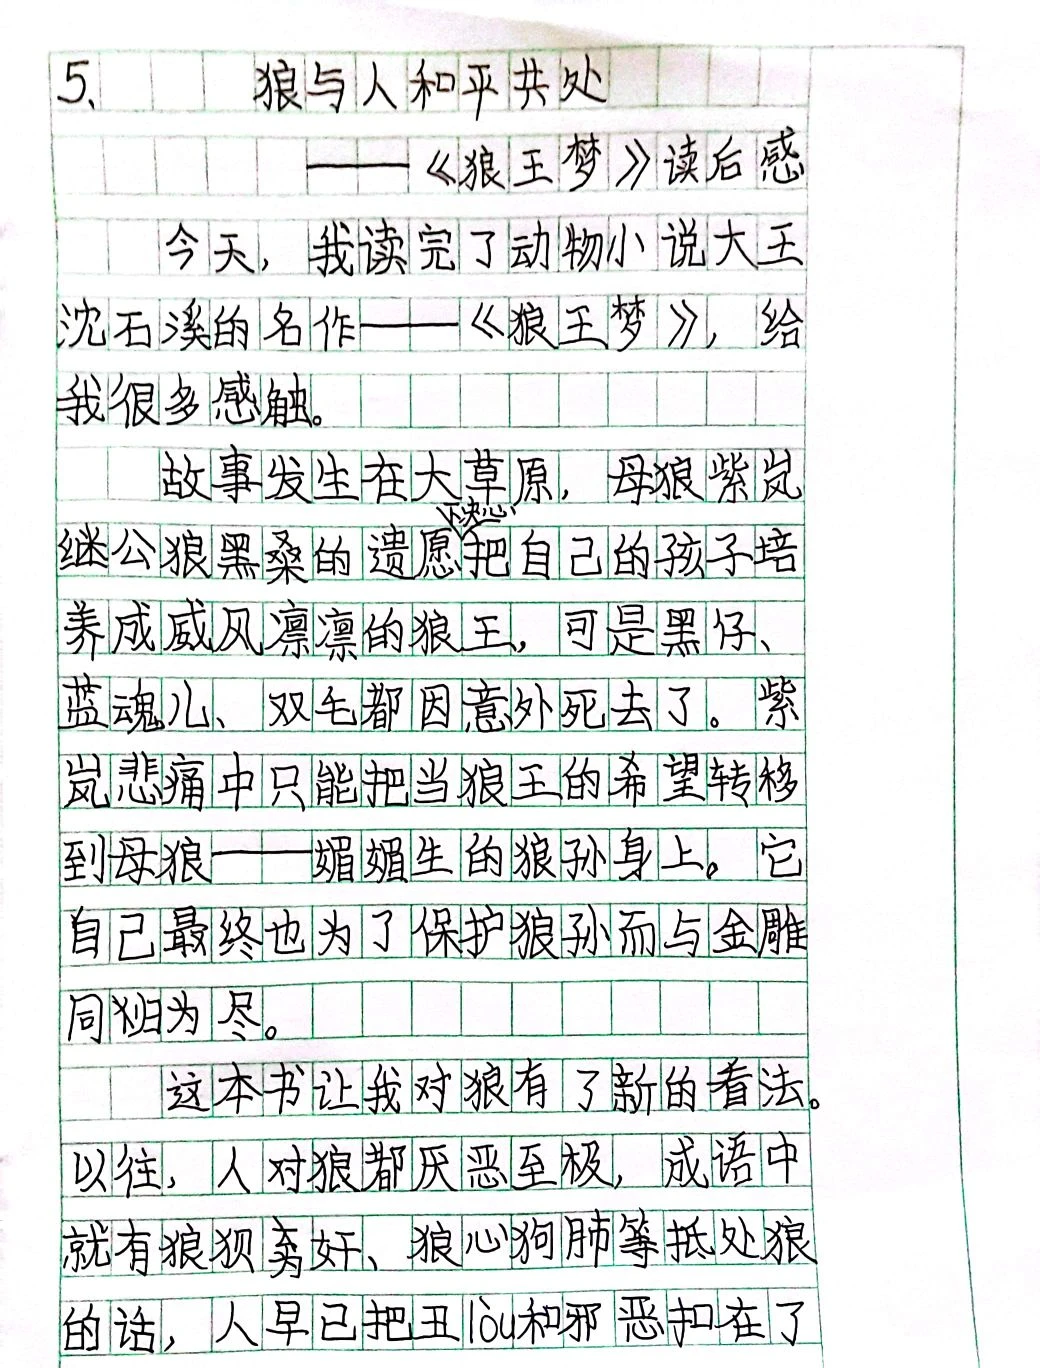 5、狼与人和平共处
——《狼王梦》读后感
今天，我读完了动物小说大王
沈石溪的名作——《狼王梦》，给
我很多感触。
故事发生在大草原，母狼紫岚
下决心
继公狼黑桑的遗愿把自己的孩子培
养成威风凛凛的狼王，可是黑仔、
蓝魂儿、双毛都因意外死去了。紫
岚悲痛中只能把当狼王的希望转移
到母狼——媚媚生的狼孙身上。它
自己最终也为了保护狼孙而与金雕
同归为尽。
这本书让我对狼有了新的看法。
以往，人对狼都厌恶至极，成语中
就有狼狈奸、狼心狗肺等抵处狼
的话，人早已把丑lòu和邪恶扣在了